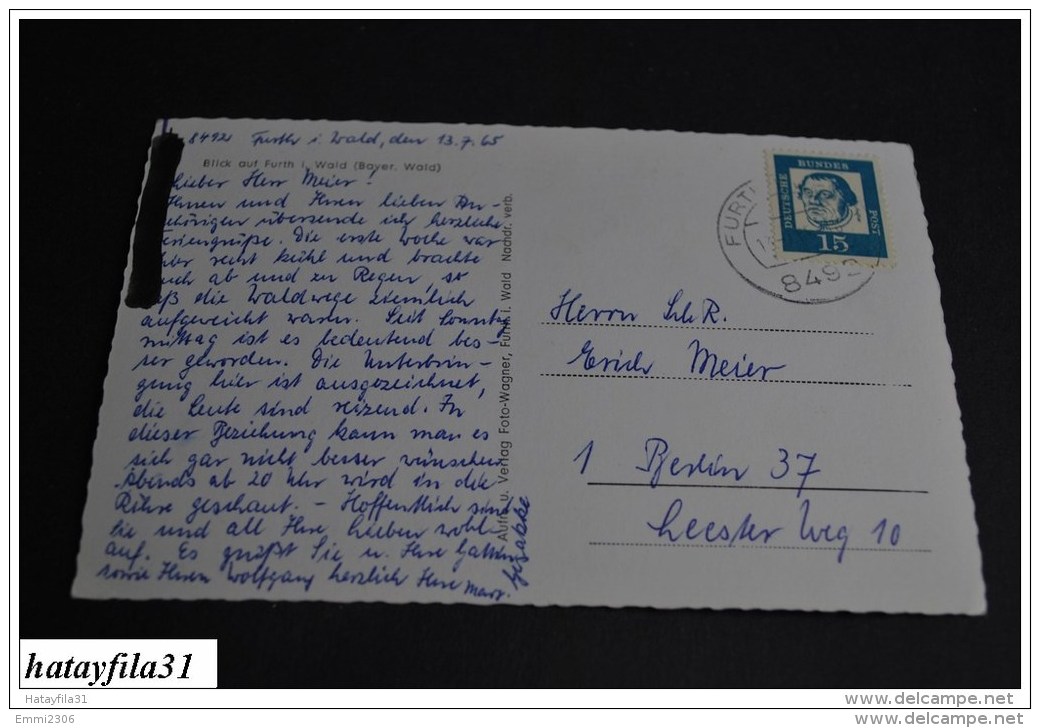 8492 Furth i. Wald, den 13.7.65
Blick auf Furth i. Wald (Bayer. Wald)
Lieber Herr Meier!
Ihnen und Ihren lieben An-
gehörigen übersende ich herzliche
Feriengrüße. Die erste Woche war
hier recht kühl und brachte
auch ab und zu Regen, so
daß die Waldwege ziemlich
aufgeweicht waren. Seit Sonntag
mittag ist es bedeutend bes-
ser geworden. Die Unterbrin-
gung hier ist ausgezeichnet,
die Leute sind reizend. In
dieser Beziehung kann man es
sich gar nicht besser wünschen
Abends ab 20 Uhr wird in die
Röhre geschaut. - Hoffentlich sind
Sie und all Ihre Lieben wohl-
auf. Es grüßt Sie u. Ihre Gattin
sowie Ihren Wolfgang herzlich Ihre
Aufn. u. Verlag Foto-Wagner, Furth i. Wald Nachdr. verb.
DEUTSCHE BUNDES POST
15
FURTH
8492
Herrn Sch.R.
Erich Meier
1 Berlin 37
Leester Weg 10
hatayfila31
Hatayfila31
Emmi2306
www.delcampe.net
www.delcampe.net